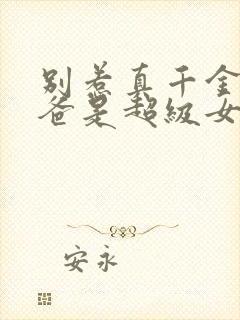 别惹真千金
爸是超级女
安永